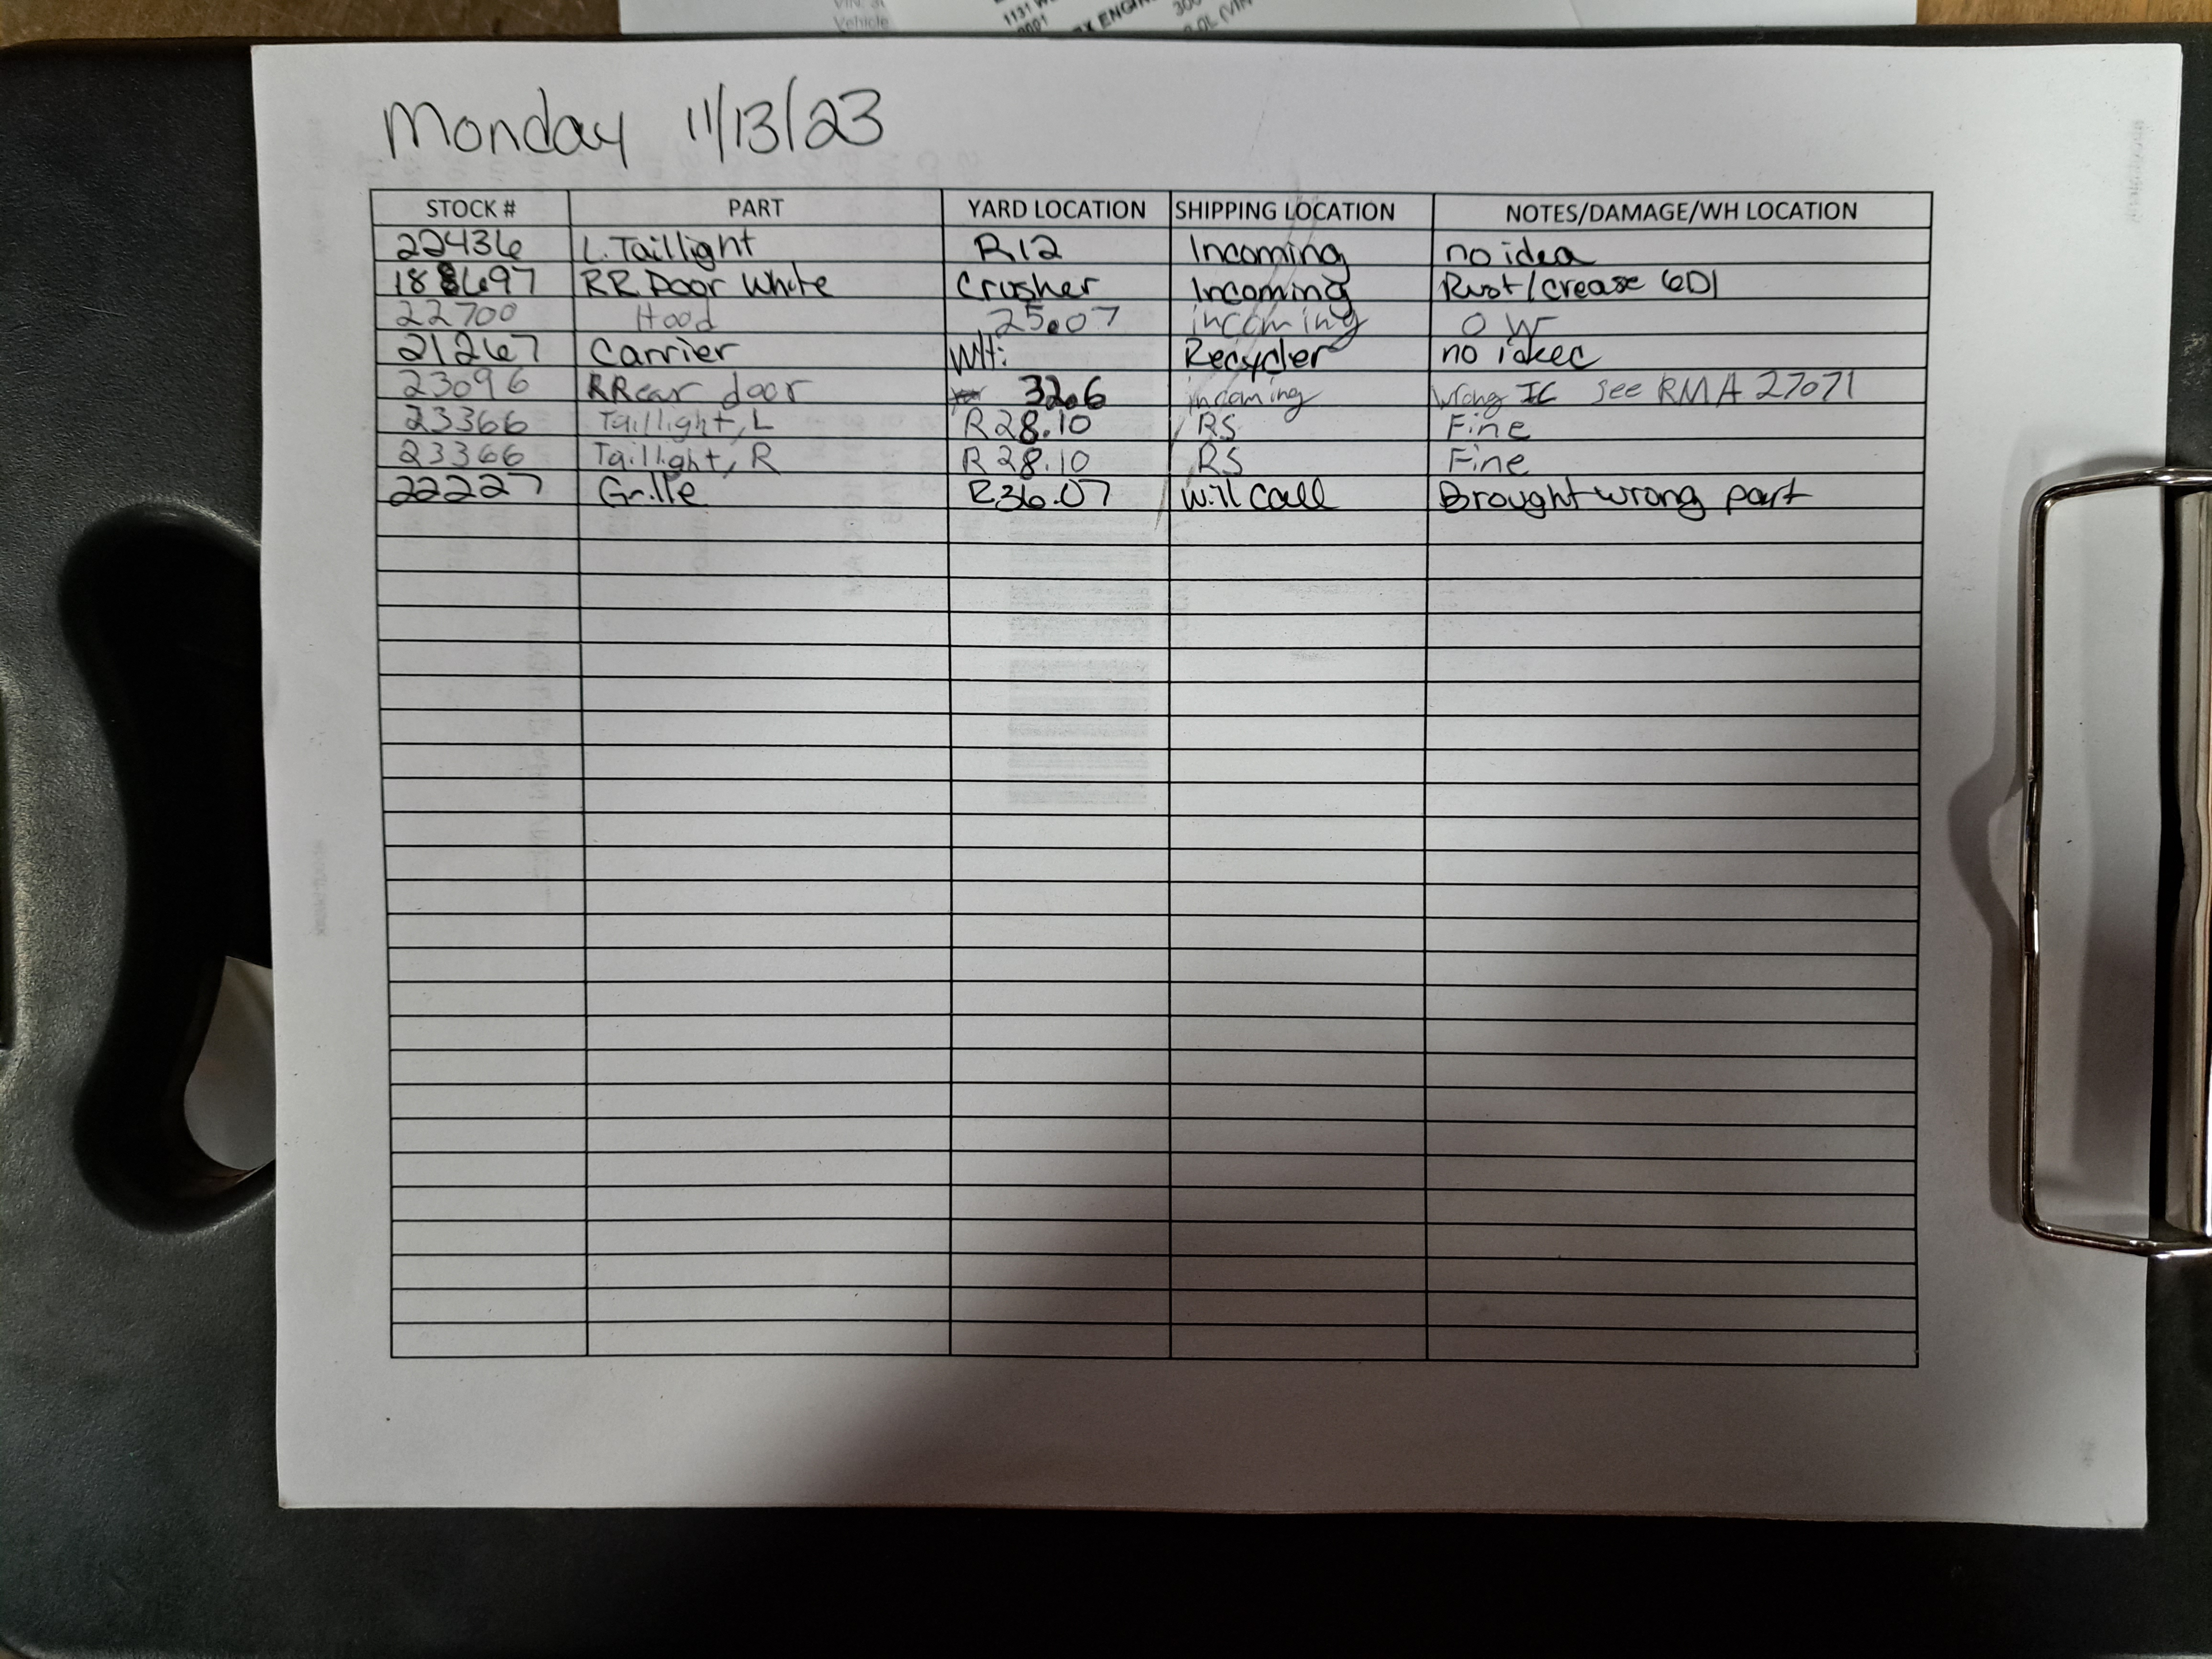 Monday 11/13/23
STOCK # PART YARD LOCATION SHIPPING LOCATION NOTES/DAMAGE/WH LOCATION
22436 L. Taillight R12 Incoming no idea
188697 RR Door White Crusher Incoming Rust/crease 6D1
22700 Hood 25.07 incoming OW
21267 Carrier Recycler no idea
23096 RRear door 32.6 incoming Wrong IC see RMA 27071
23366 Taillight, L R28.10 RS Fine
23366 Taillight, R R28.10 RS Fine
22227 Grille R36.07 will call Brought wrong part